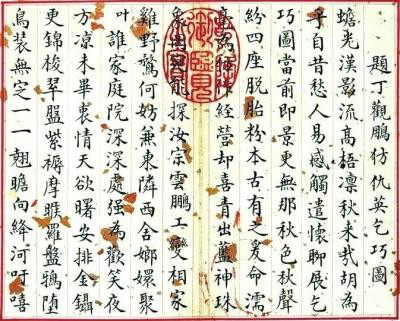 題丁觀鵬仿仇英乞巧圖
蟾光漢影流高梧凜秋来哉胡為
乎自昔愁人易感觸遣懷聊展乞
巧圖當前即景更無那秋色秋聲
紛四座脫胎粉本古有之爰命濡
毫為作經營却喜青出藍神珠
象罔能探汝宗雲鵬工相家
雞野鶩何妨兼東隣西舍嫏嬛聚
叶誰家庭院深深處强為歡笑夜
方凉未畢衷情天欲曙安排金鑷
更錦梭翠盤紫褥摩睺羅盤鴉堕
裝無定一一翹瞻向絳河吁嘻